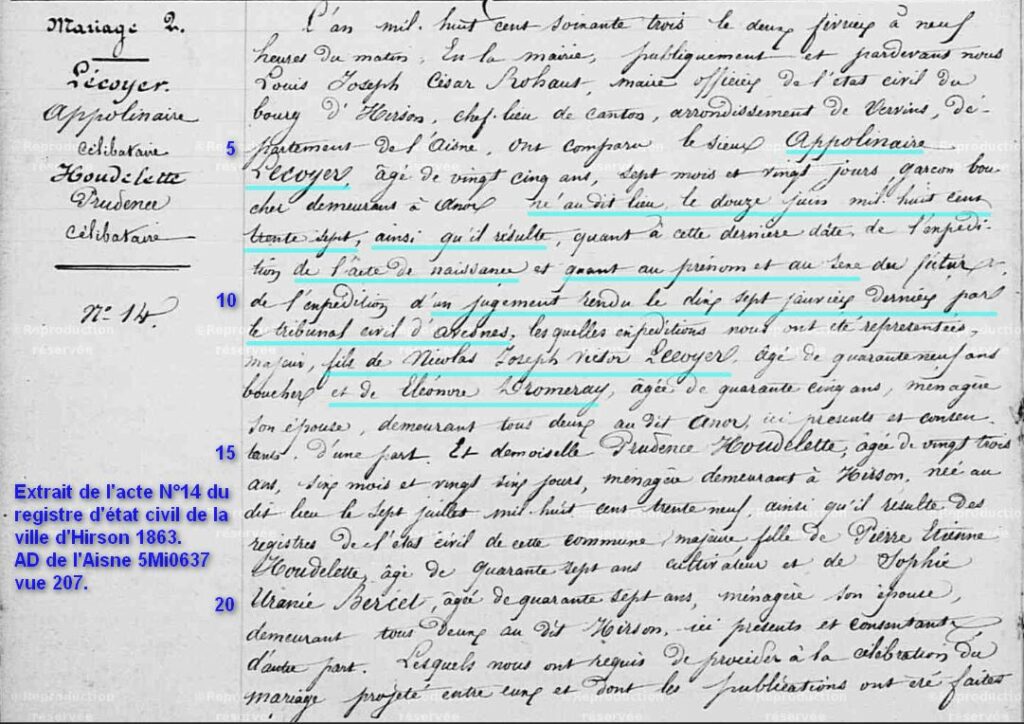 Mariage 2.
Lécoyer.
Appolinaire
célibataire
Houdelette
Prudence
célibataire
N° 14.
L'an mil huit cent soixante trois le deux février à neuf
heures du matin. En la mairie, publiquement et pardevant nous
Louis Joseph César Rohaut, maire officier de l'état civil du
bourg d'Hirson, chef-lieu de canton, arrondissement de Vervins, dé-
5
partement de l'Aisne, ont comparu le sieur Appolinaire
Lécoyer, âgé de vingt cinq ans, sept mois et vingt jours, garçon bou-
cher demeurant à Anor né au dit lieu, le douze juin mil huit cent
trente sept, ainsi qu'il résulte, quant à cette dernière date, de l'expédi-
tion de l'acte de naissance et quant au prénom et au sexe du futur
10
de l'expédition d'un jugement rendu le dix sept janvier dernier par
le tribunal civil d'Avesnes, lesquelles expéditions nous ont été représentées,
majeur, fils de Nicolas Joseph Victor Lécoyer, âgé de quarante neuf ans
boucher et de Eléonore Dromeray, âgée de quarante cinq ans, ménagère
son épouse, demeurant tous deux au dit Anor, ici présents et consen-
15
tants. d'une part. Et demoiselle Prudence Houdelette, âgée de vingt trois
ans, six mois et vingt six jours, ménagère demeurant à Hirson, née au
dit lieu le sept juillet mil huit cent trente neuf, ainsi qu'il résulte des
registres de l'état civil de cette commune, majeure fille de Pierre Etienne
Houdelette, âgé de quarante sept ans cultivateur et de Sophie
20
Uranie Bercet, âgée de quarante sept ans, ménagère son épouse,
demeurant tous deux au dit Hirson, ici présents et consentants
d'autre part. Lesquels nous ont requis de procéder à la célébration du
mariage projeté entre eux et dont les publications ont été faites
Extrait de l'acte N°14 du
registre d'état civil de la
ville d'Hirson 1863.
AD de l'Aisne 5Mi0637
vue 207.
©Reproduction
réservée